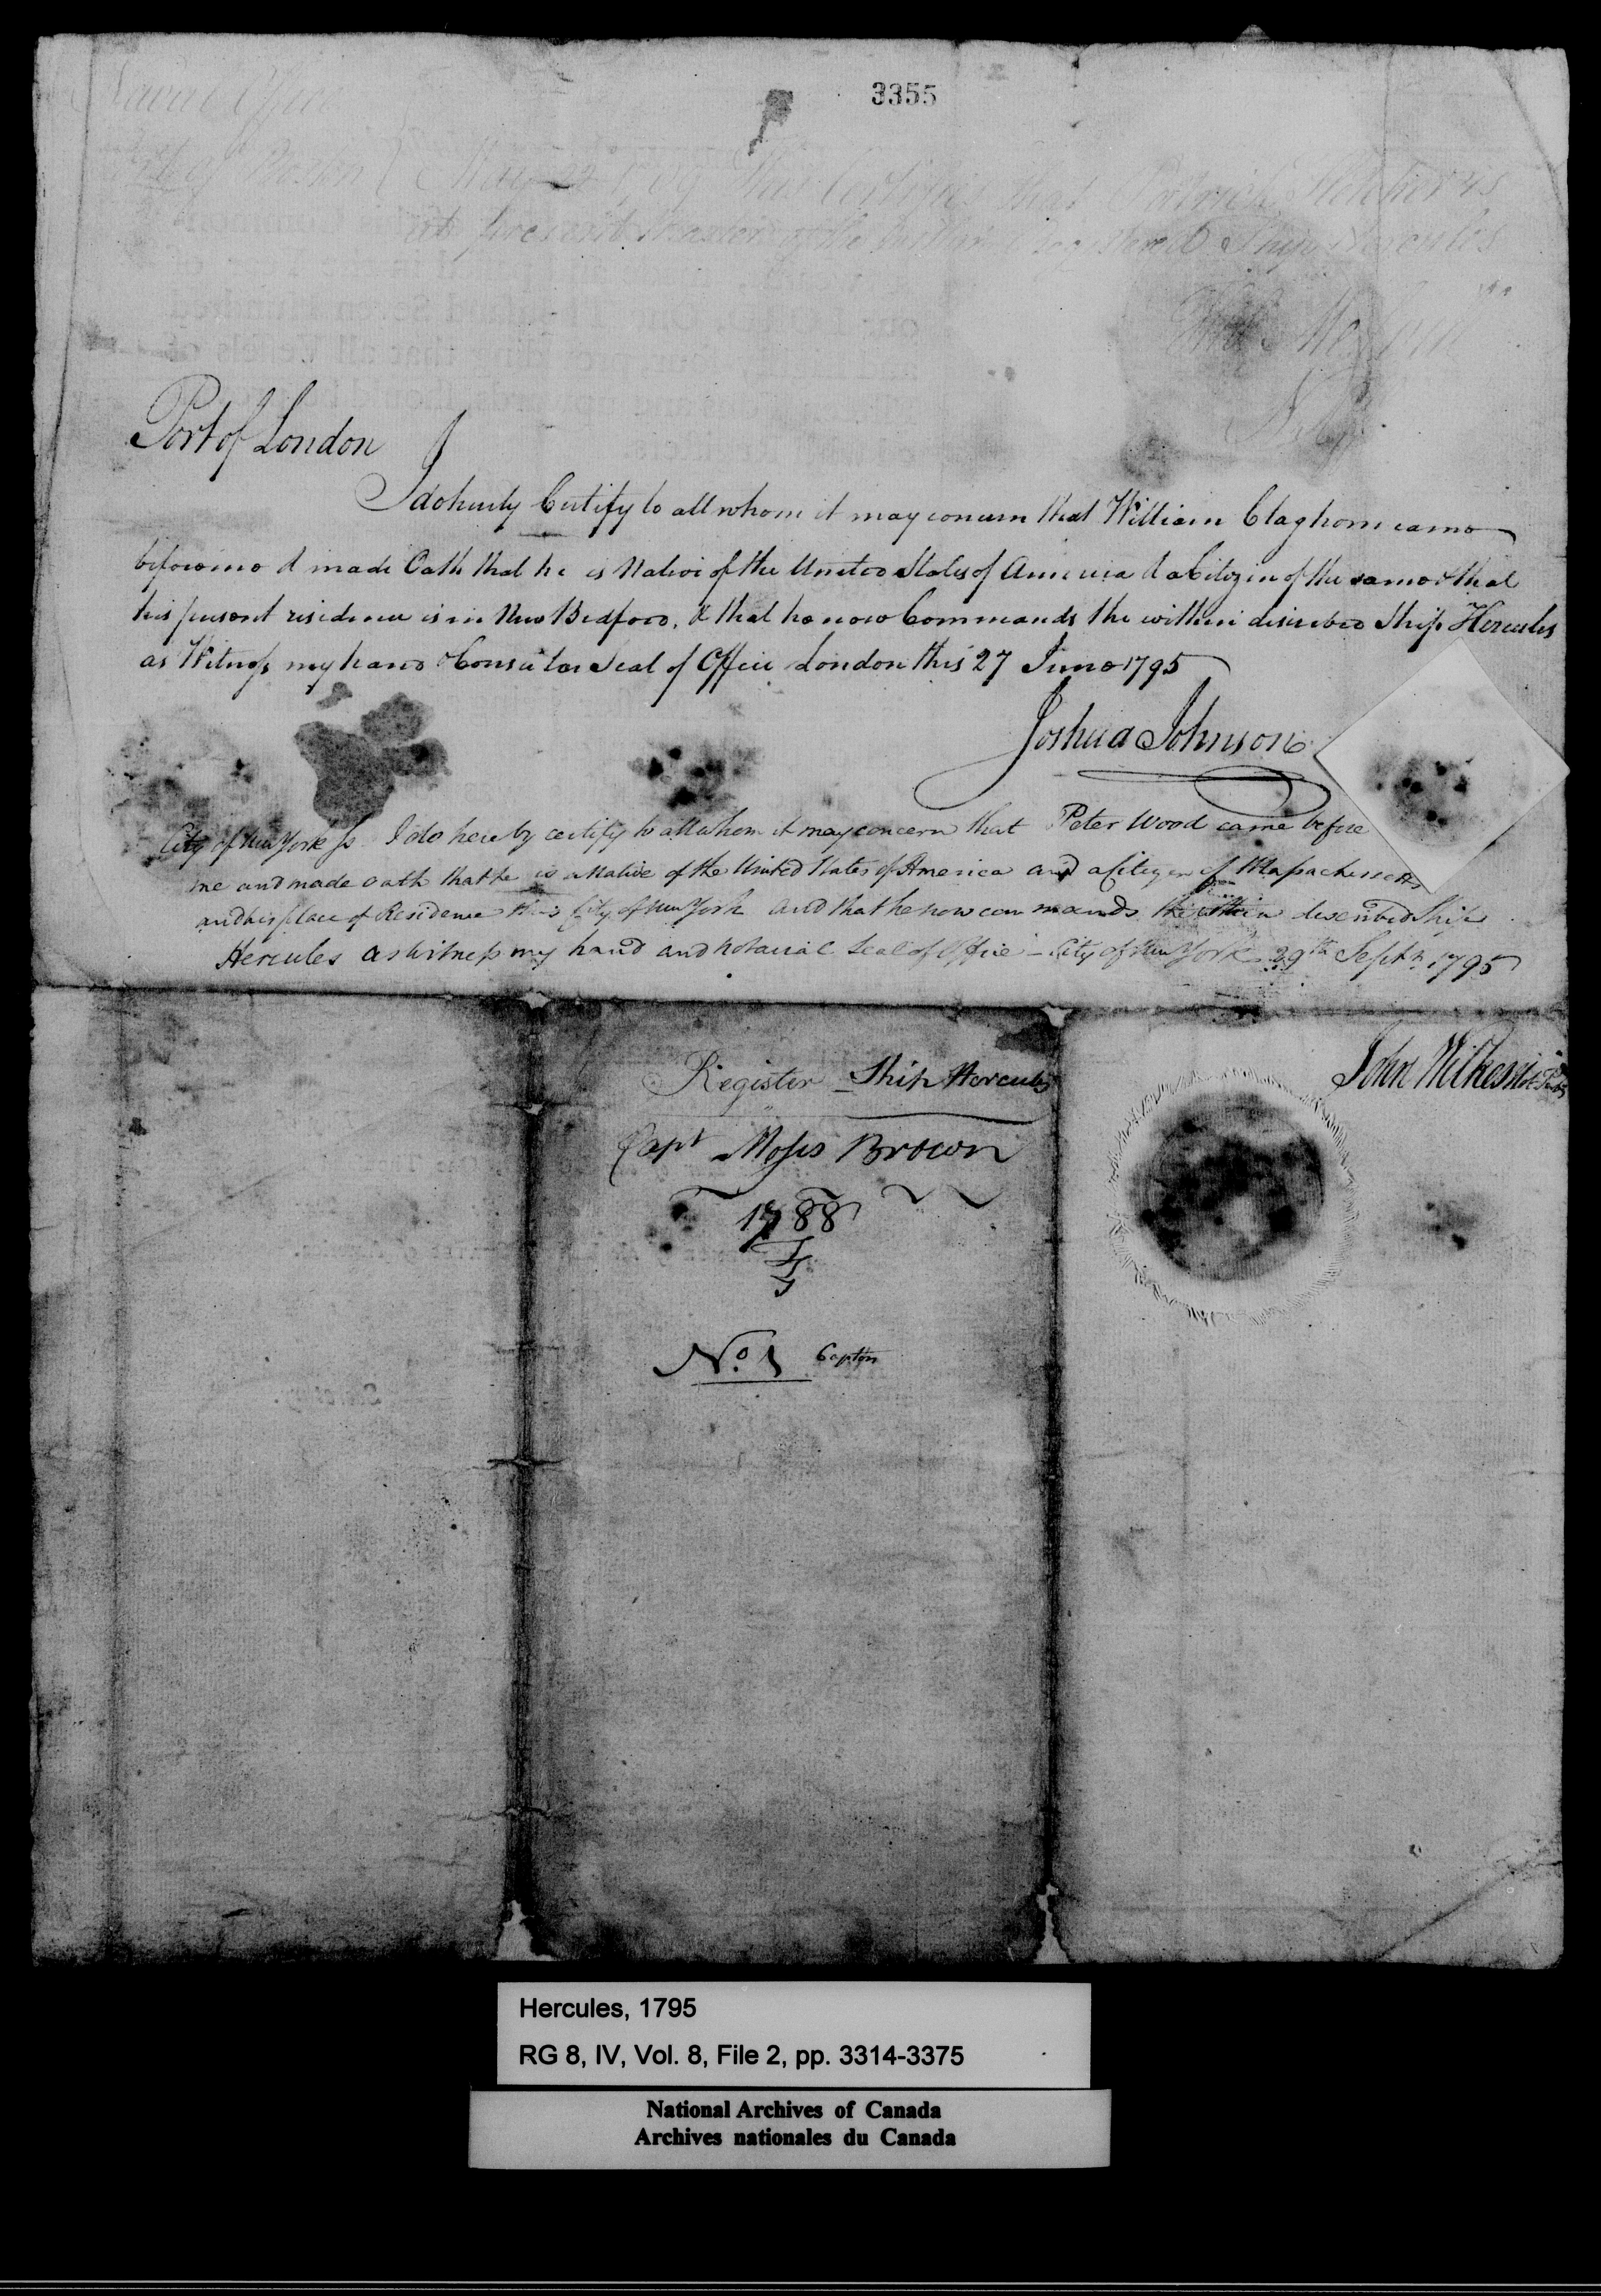 3355
Naval Office
May 22 1789 This Certifies that Patrick Fletcher is
at present Master of the within registered Ship Hercules
Port of London
I do hereby Certify to all whom it may concern that William Claghorn came
before me & made Oath that he is Native of the United States of America & a Citizen of the same & that
his present residence is in New Bedford, & that he now Commands the within discribed Ship Hercules
as Witness my hand & Consular Seal of Office London this 27 June 1795
Joshua Johnson
City of New York ss I do hereby certify to all whom it may concern that Peter Wood came before
me and made oath that he is a Native of the United States of America and a Citizen of Massachusetts
and his place of Residence this City of New York and that he now commands the within described Ship
Hercules as witness my hand and notarial Seal of Office - City of New York 29th Septr. 1795
John Wilkes
Register Ship Hercules
Capt Moses Brown
1788
No. 1 Capton
Hercules, 1795
RG 8, IV, Vol. 8, File 2, pp. 3314-3375
National Archives of Canada
Archives nationales du Canada